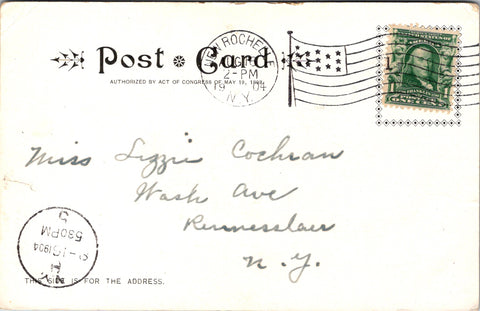 Post Card
AUTHORIZED BY ACT OF CONGRESS OF MAY 19, 1898.
NEW ROCHELLE
2-PM
19 04
N.Y.
1
Miss Lizzie Cochran
Wash Ave
Rennesslaer
N. Y.
530PM
1904
N.Y.
THIS SIDE IS FOR THE ADDRESS.